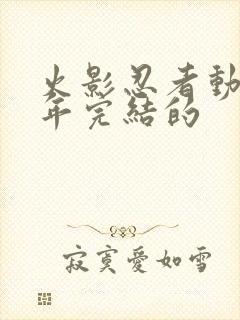 火影忍者動
年完結的
寂寞愛如雪